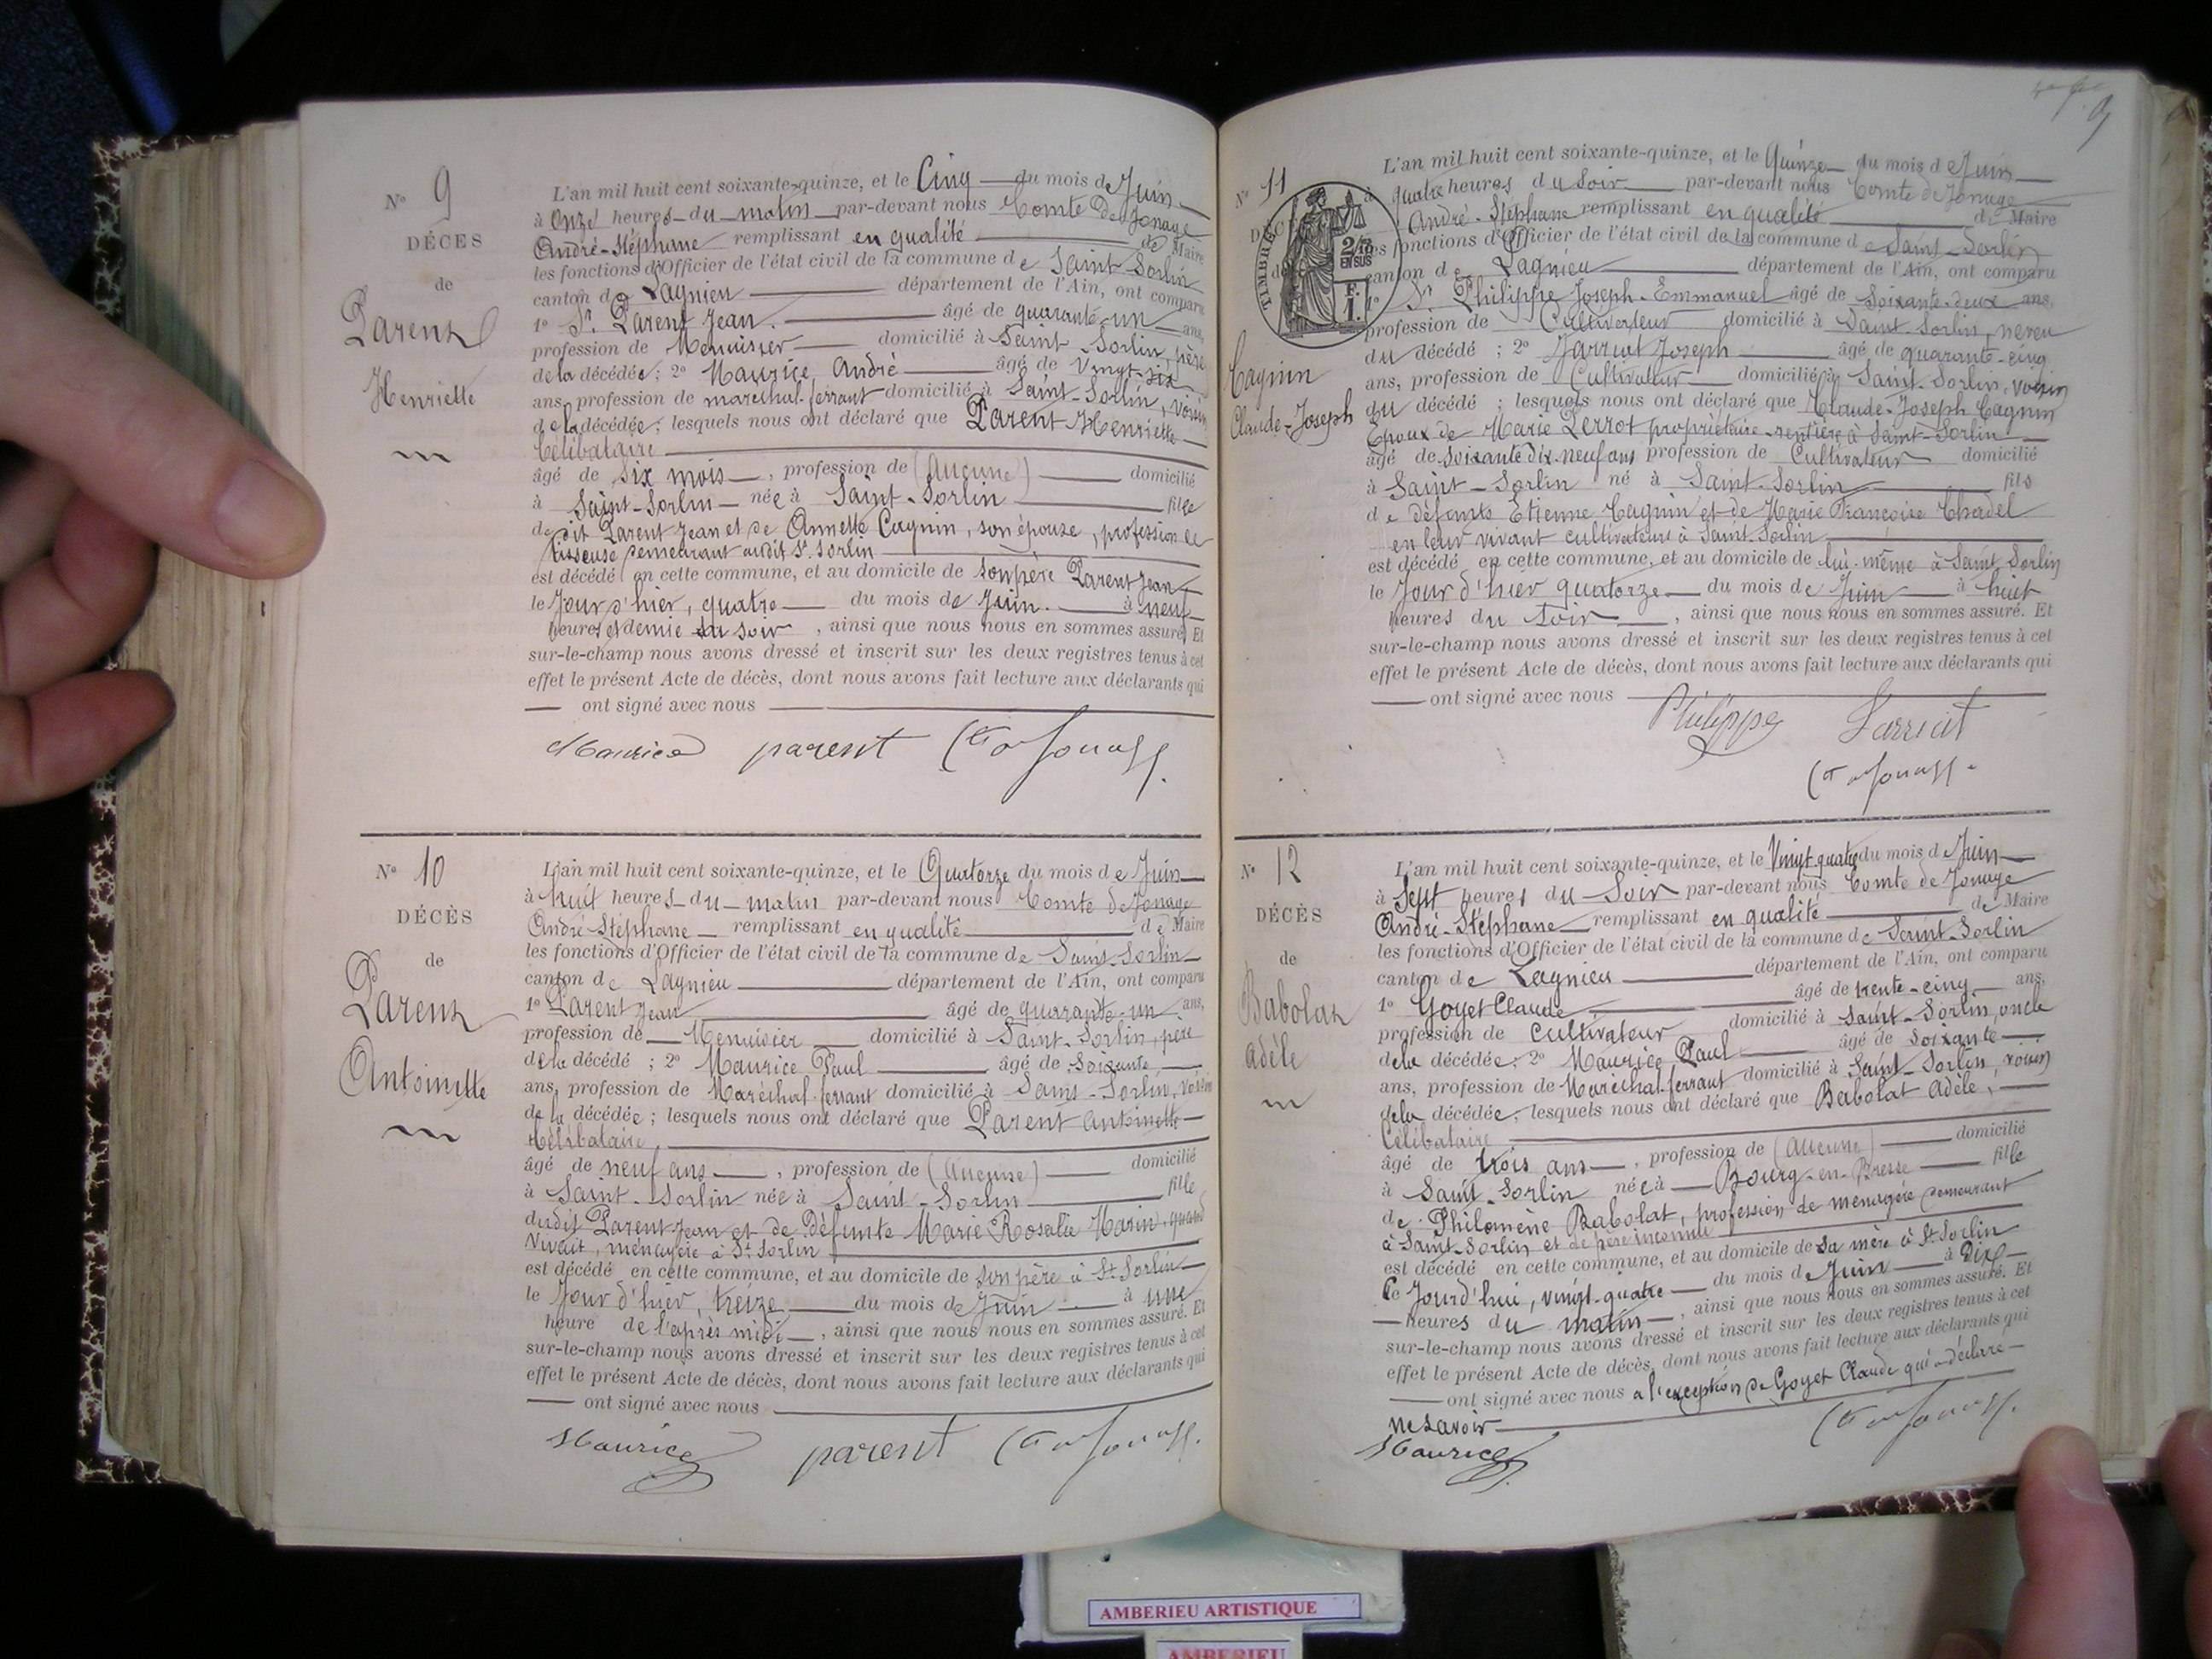 N° 9
DÉCES
de
Parent
Henriette
L'an mil huit cent soixante-quinze, et le Cinq du mois de Juin
à Onze heures du matin par-devant nous Comte De Jonage
André-Stéphane remplissant en qualité de Maire
les fonctions d'Officier de l'état civil de la commune de Saint-Sorlin
canton de Lagnieu département de l'Ain, ont comparu
1° Sr. Parent Jean. âgé de quarante-un ans,
profession de Menuisier domicilié à Saint-Sorlin, père
de la décédée; 2° Maurice André âgé de Vingt-six
ans, profession de maréchal-ferrant domicilié à Saint-Sorlin, voisin
de la décédée; lesquels nous ont déclaré que Parent Henriette
Célibataire
âgé de six mois, profession de (Aucune) domicilié
à Saint-Sorlin née à Saint-Sorlin fille
de dit Parent Jean et de Annette Cagnin, son épouze, profession de
tisseuse demeurant audit St. Sorlin
est décédé en cette commune, et au domicile de son père Parent Jean
le Jour d'hier, quatre du mois de Juin. à neuf
heures et demie du soir, ainsi que nous nous en sommes assuré. Et
sur-le-champ nous avons dressé et inscrit sur les deux registres tenus à cet
effet le présent Acte de décès, dont nous avons fait lecture aux déclarants qui
ont signé avec nous
Maurice parent Cte de Jonage.
N° 10
DÉCÈS
de
Parent
Antoinette
L'an mil huit cent soixante-quinze, et le Quatorze du mois de Juin
à huit heures du matin par-devant nous Comte de Jonage
André Stéphane remplissant en qualité de Maire
les fonctions d'Officier de l'état civil de la commune de Saint-Sorlin
canton de Lagnieu département de l'Ain, ont comparu
1° Parent Jean âgé de quarante-un ans,
profession de Menuisier domicilié à Saint-Sorlin, père
de la décédé; 2° Maurice Paul âgé de Soixante,
ans, profession de Maréchal-ferrant domicilié à Saint-Sorlin, voisin
de la décédée; lesquels nous ont déclaré que Parent Antoinette
Célibataire,
âgé de neuf ans, profession de (Aucune) domicilié
à Saint-Sorlin née à Saint-Sorlin fille
dudit Parent Jean et de Défunte Marie Rosalie Marin, quand
vivait, ménagère à St. Sorlin
est décédé en cette commune, et au domicile de son père à St. Sorlin
le Jour d'hier, treize du mois de Juin à une
heure de l'après midi, ainsi que nous nous en sommes assuré. Et
sur-le-champ nous avons dressé et inscrit sur les deux registres tenus à cet
effet le présent Acte de décès, dont nous avons fait lecture aux déclarants qui
ont signé avec nous
Maurice parent Cte de Jonage.
9
N° 11
DÉC
de
TIMBRE
2/10
EN SUS
F.
1.
Cagnin
Claude-Joseph
L'an mil huit cent soixante-quinze, et le Quinze du mois de Juin
à quatre heures du Soir par-devant nous Comte de Jonage
André-Stéphane remplissant en qualité de Maire
les fonctions d'Officier de l'état civil de la commune de Saint-Sorlin
canton de Lagnieu département de l'Ain, ont comparu
1° Sr Philippe Joseph-Emmanuel âgé de Soixante-deux ans,
profession de Cultivateur domicilié à Saint-Sorlin, neveu
du décédé; 2° Jarriat Joseph âgé de quarante-cinq
ans, profession de Cultivateur domicilié à Saint-Sorlin, voisin
du décédé; lesquels nous ont déclaré que Claude-Joseph Cagnin
Epoux de Marie Perrot propriétaire-rentière à Saint-Sorlin
âgé de soixante dix-neuf ans profession de Cultivateur domicilié
à Saint-Sorlin né à Saint-Sorlin fils
de défunts Etienne Cagnin et de Marie Françoise Chadel
en leur vivant cultivateurs à Saint-Sorlin
est décédé en cette commune, et au domicile de lui-même à Saint-Sorlin
le Jour d'hier quatorze du mois de Juin à huit
heures du soir, ainsi que nous nous en sommes assuré. Et
sur-le-champ nous avons dressé et inscrit sur les deux registres tenus à cet
effet le présent Acte de décès, dont nous avons fait lecture aux déclarants qui
ont signé avec nous
Philippe Jarriat
Cte de Jonage.
N° 12
DÉCÈS
de
Babolat
Adèle
L'an mil huit cent soixante-quinze, et le Vingt-quatre du mois de Juin
à Sept heures du Soir par-devant nous Comte de Jonage
André-Stéphane remplissant en qualité de Maire
les fonctions d'Officier de l'état civil de la commune de Saint-Sorlin
canton de Lagnieu département de l'Ain, ont comparu
1° Goyet Claude âgé de trente-cinq ans,
profession de Cultivateur domicilié à Saint-Sorlin, oncle
de la décédée; 2° Maurice Paul âgé de soixante
ans, profession de Maréchal-ferrant domicilié à Saint-Sorlin, voisin
de la décédée; lesquels nous ont déclaré que Babolat Adèle,
Célibataire
âgé de trois ans, profession de (Aucune) domicilié
à Saint-Sorlin née à Bourg-en-Bresse fille
de Philomène Babolat, profession de ménagère demeurant
à Saint-Sorlin et de père inconnu
est décédé en cette commune, et au domicile de sa mère à St. Sorlin
le Jourd'hui, vingt-quatre du mois de Juin à Dix
heures du matin, ainsi que nous nous en sommes assuré. Et
sur-le-champ nous avons dressé et inscrit sur les deux registres tenus à cet
effet le présent Acte de décès, dont nous avons fait lecture aux déclarants qui
ont signé avec nous a l'exception de Goyet Claude qui a déclaré
ne savoir
Maurice Cte de Jonage.
AMBERIEU ARTISTIQUE
AMBERIEU